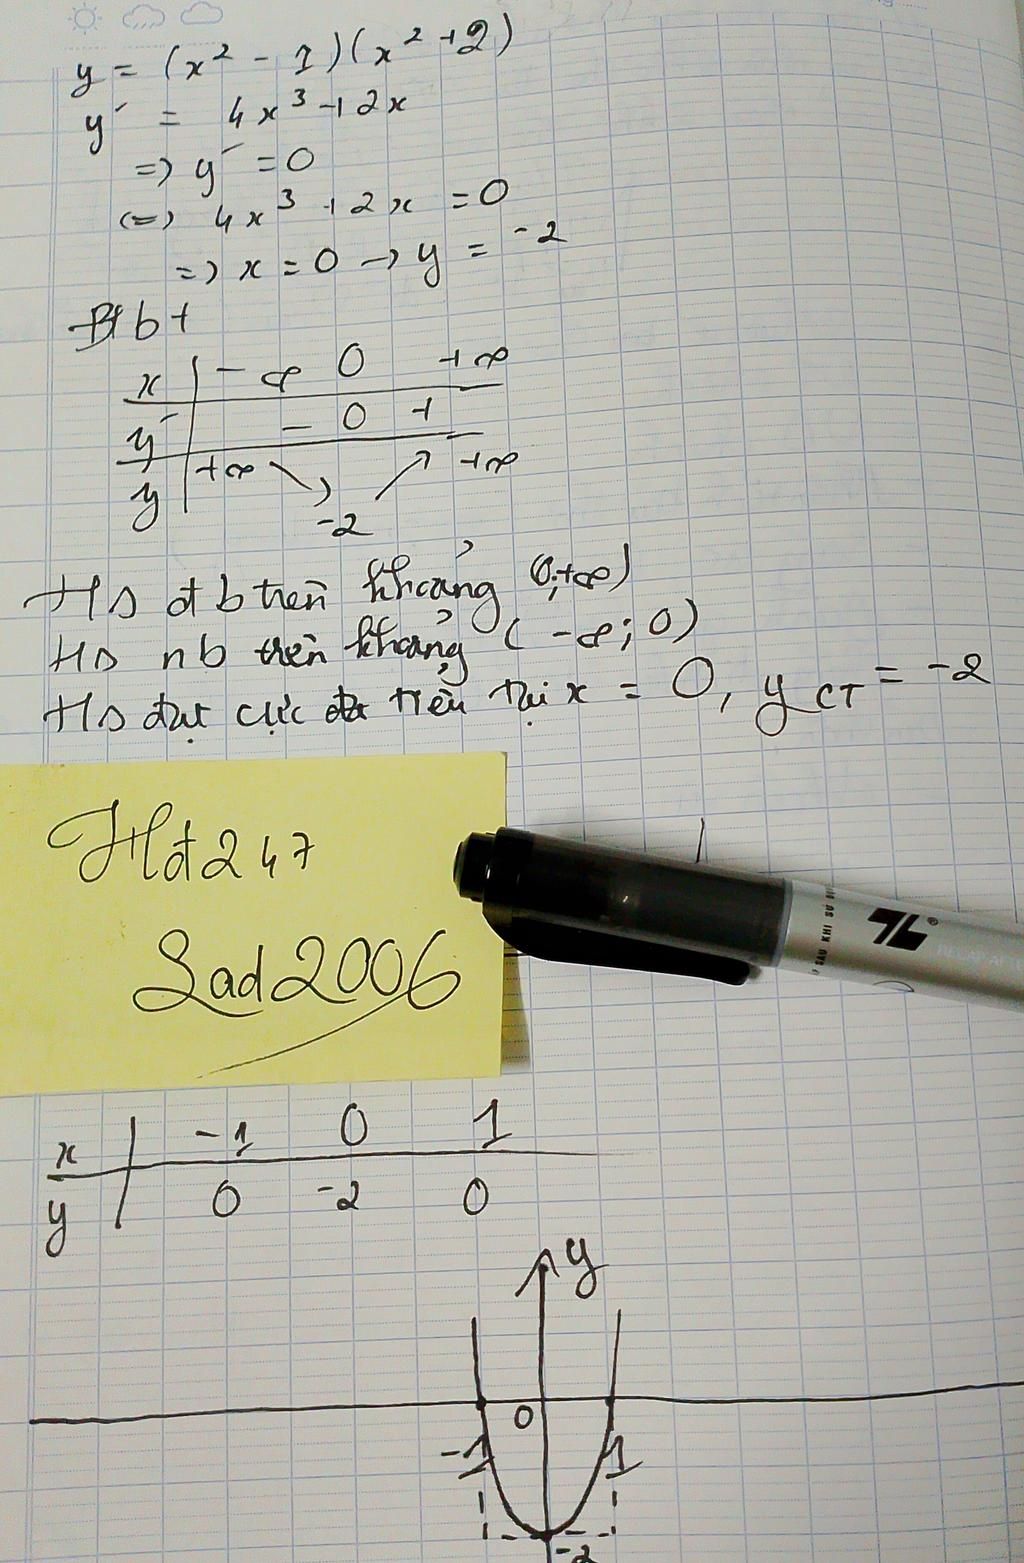 y = (x² - 1)(x² + 2)
y' = 4x³ + 2x
=> y' = 0
<=> 4x³ + 2x = 0
=> x = 0 → y = -2
Btbt
x | -∞ 0 +∞
y' | - 0 +
y | +∞ ↘ -2 ↗ +∞
Hs đb trên khoảng (0;+∞)
Hs nb trên khoảng (-∞; 0)
Hs đạt cực tiểu tại x = 0, y CT = -2
Hđ247
Sad2006
SAU KHI SỬ
TL®
x | -1 0 1
y | 0 -2 0
y
0
-1 1
-2